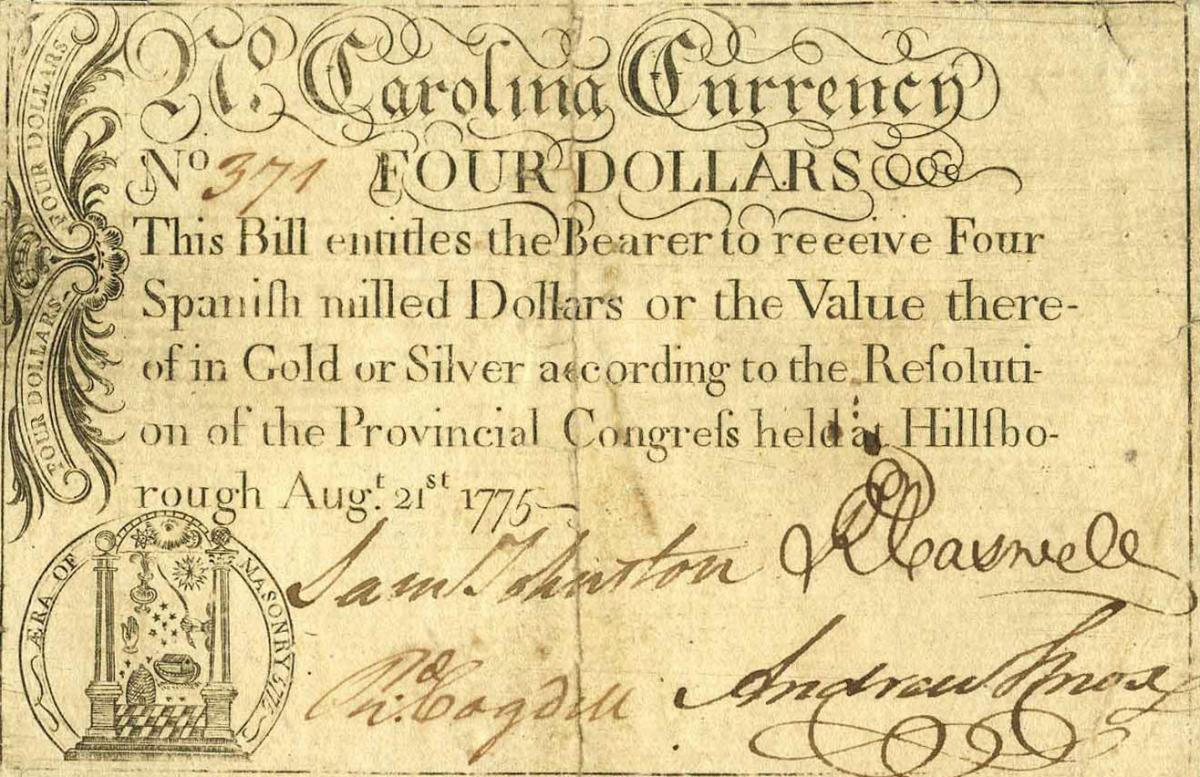 FOUR DOLLARS
FOUR DOLLARS
No. Carolina Currency
No 371 FOUR DOLLARS
This Bill entitles the Bearer to receive Four
Spaniſh milled Dollars or the Value there-
of in Gold or Silver according to the Reſoluti-
on of the Provincial Congreſs held at Hillſbo-
rough Aug.t 21st 1775
Sam Johnston
R Caswell
Ri.d Cogdell
Andrew Knox
ÆRA OF MASONRY 5772